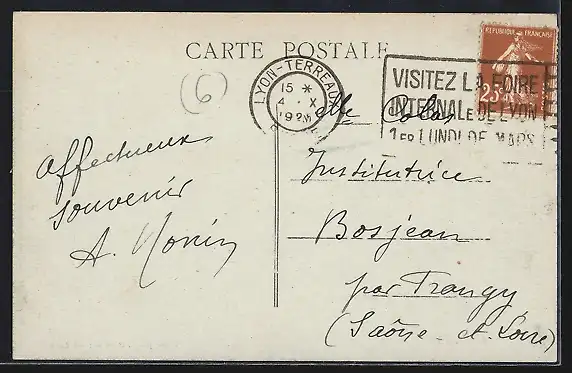 CARTE POSTALE
RÉPUBLIQUE FRANÇAISE
25c
(6)
LYON-TERREAUX
15 *
4 · X
VISITEZ LA FOIRE
INTERNALE DE LYON
1ER LUNDI DE MARS
Affectueux
souvenir
A.
Mlle
Institutrice
Bosjean
par Frangy
(Saône-et-Loire)